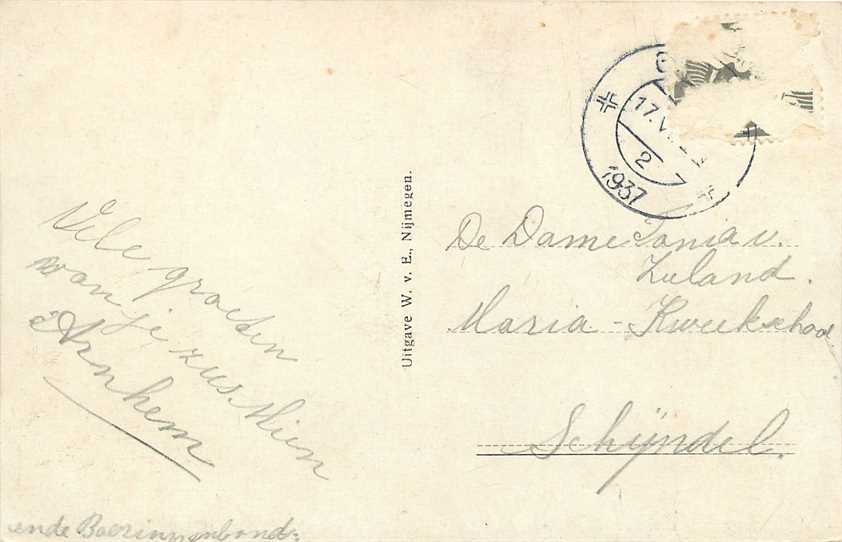 Vele groeten
van je zus. Mien
Arnhem
ende Boerinnenbond:
Uitgave W. v. E., Nijmegen.
17.V
2
1937
De Dame Sonia v.
Zuland.
Maria-Kweekschool
Schijndel.